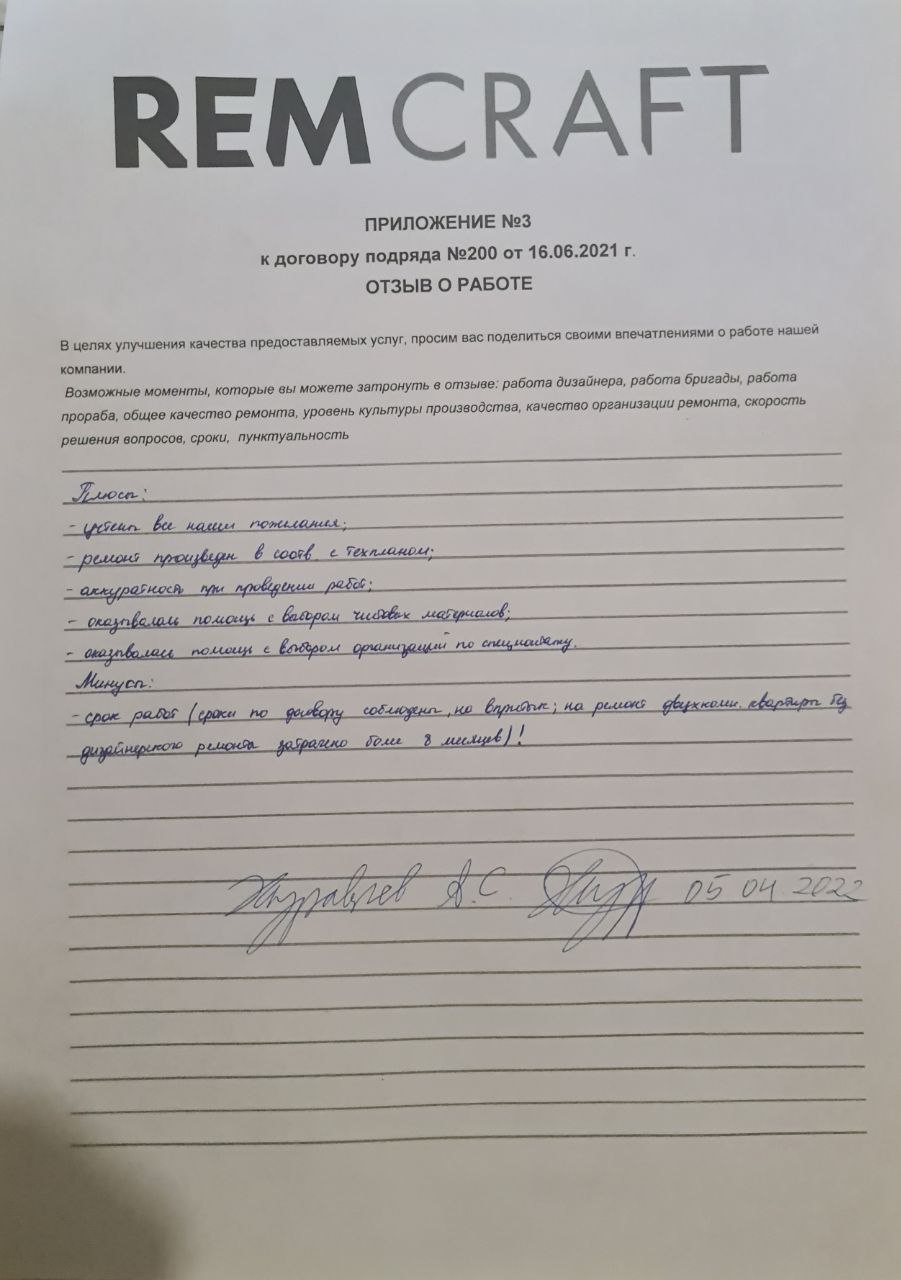 REMCRAFT
ПРИЛОЖЕНИЕ №3
к договору подряда №200 от 16.06.2021 г.
ОТЗЫВ О РАБОТЕ
В целях улучшения качества предоставляемых услуг, просим вас поделиться своими впечатлениями о работе нашей
компании.
Возможные моменты, которые вы можете затронуть в отзыве: работа дизайнера, работа бригады, работа
прораба, общее качество ремонта, уровень культуры производства, качество организации ремонта, скорость
решения вопросов, сроки, пунктуальность
Плюсы:
- учтены все наши пожелания;
- ремонт произведен в соотв. с техпланом;
- аккуратность при проведении работ;
- оказывалась помощь с выбором чистовых материалов;
- оказывалась помощь с выбором организаций по
Минусы:
- срок работ (сроки по договору соблюдены, но впритык; на ремонт двухкомн. квартиры без
дизайнерского ремонта затрачено более 8 месяцев)!
Журавлев А.С. 05 04 2022